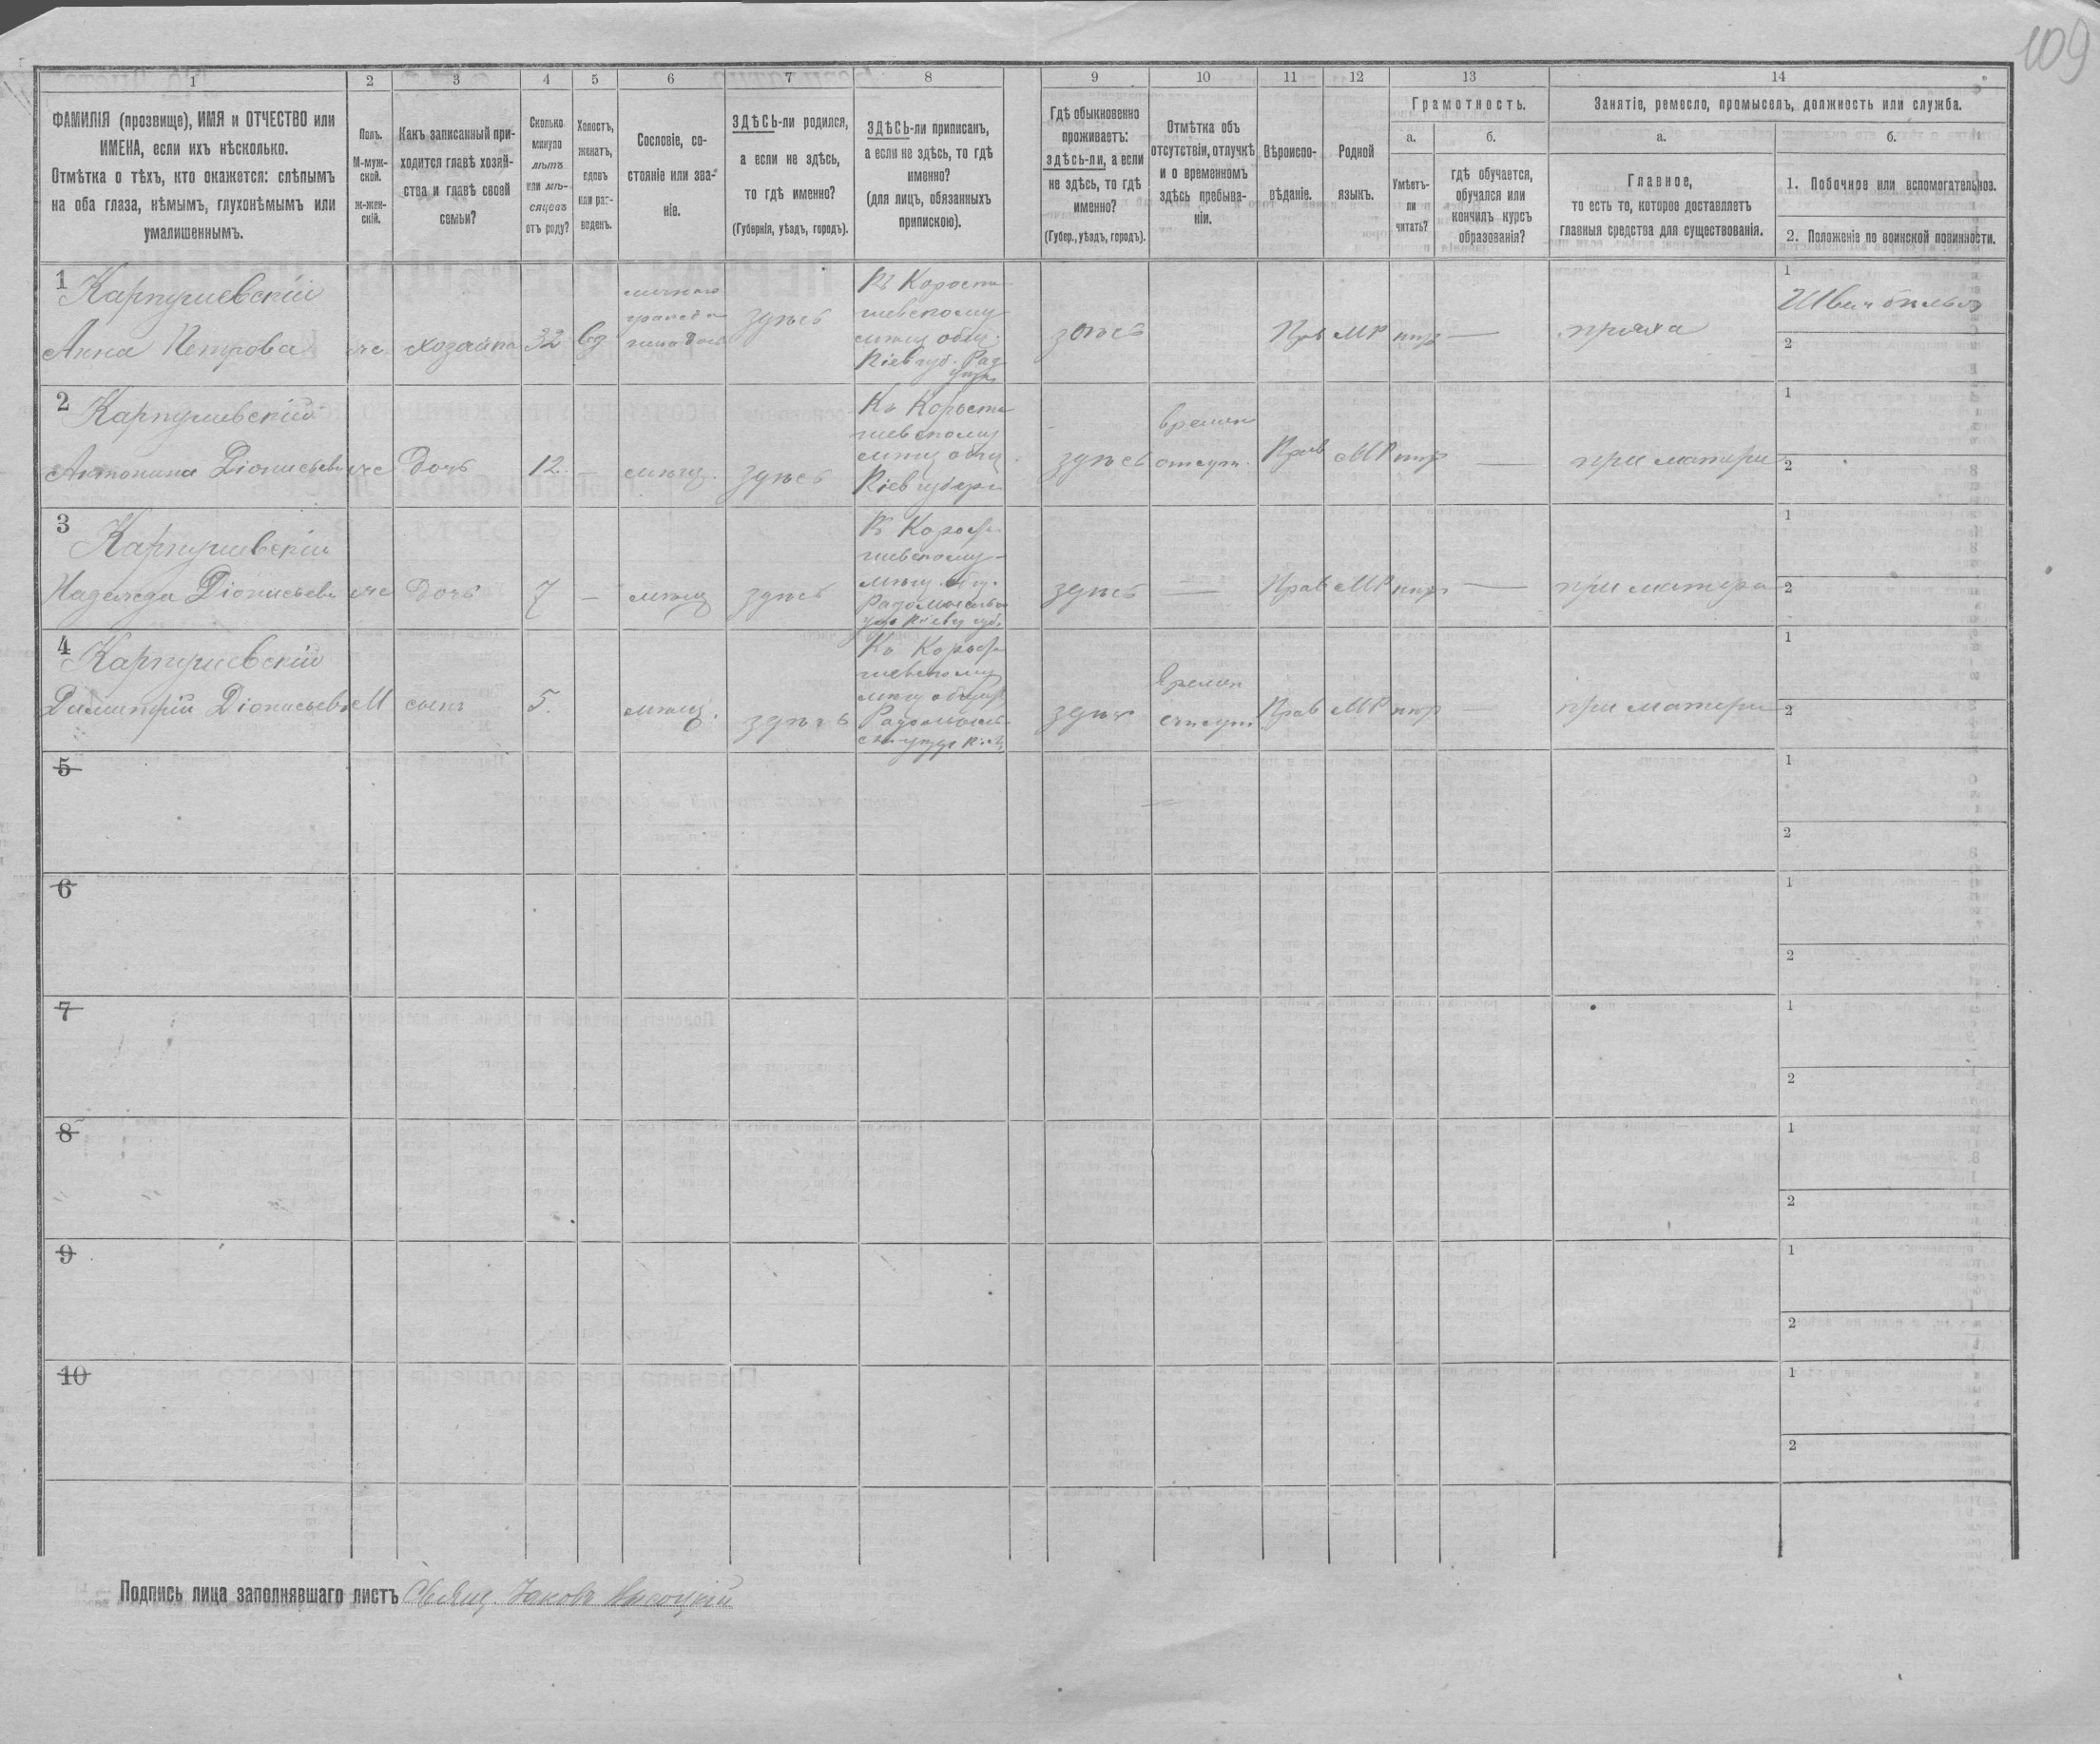 109
1 2 3 4 5 6 7 8 9 10 11 12 13 14
ФАМИЛІЯ (прозвище), ИМЯ и ОТЧЕСТВО или
ИМЕНА, если ихъ нѣсколько.
Отмѣтка о тѣхъ, кто окажется: слѣпымъ
на оба глаза, нѣмымъ, глухонѣмымъ или
умалишеннымъ.
Полъ.
М-муж-
ской.
ж-жен-
скій.
Какъ записанный при-
ходится главѣ хозяй-
ства и главѣ своей
семьи?
Сколько
минуло
лѣтъ
или мѣ-
сяцевъ
отъ роду?
Холостъ,
женатъ,
вдовъ
или раз-
веденъ.
Сословіе, со-
стояніе или зва-
ніе.
ЗДѢСЬ-ли родился,
а если не здѣсь,
то гдѣ именно?
(Губернія, уѣздъ, городъ).
ЗДѢСЬ-ли приписанъ,
а если не здѣсь, то гдѣ
именно?
(для лицъ, обязанныхъ
припискою).
Гдѣ обыкновенно
проживаетъ:
здѣсь-ли, а если
не здѣсь, то гдѣ
именно?
(Губер., уѣздъ, городъ).
Отмѣтка объ
отсутствіи, отлучкѣ
и о временномъ
здѣсь пребыва-
ніи.
Вѣроиспо-
вѣданіе.
Родной
языкъ.
Грамотность.
а.
Умѣетъ-
ли
читать?
б.
гдѣ обучается,
обучался или
кончилъ курсъ
образованія?
Занятіе, ремесло, промыселъ, должность или служба.
а.
Главное,
то есть то, которое доставляетъ
главныя средства для существованія.
б.
1. Побочное или вспомогательное.
2. Положеніе по воинской повинности.
1
Карпушевскій
Анна Петрова
же
хозяйка
32
вд
здѣсь
Къ Корости-
шевскому
Кіев губ. Рад
здѣсь
Прав
МР
пряха
1
2
2
Карпушевскій
Антонина Діонисьева
же
Дочь
12
—
мѣщ.
здѣсь
Къ Корости
шевскому
здѣсь
времен
отсут.
Прав
МР
—
при матери
1
2
3
Карпушевскій
Надежда Діонисьева
же
Дочь
7
—
мѣщ
здѣсь
Къ Корост
шевскому
здѣсь
—
Прав
МР
—
при матери
1
2
4
Карпушевскій
Димитрій Діонисьевъ
М
сынъ
5.
мѣщ.
здѣсь
Къ Корост
шевскому
здѣсь
Времен
отсут
Прав
МР
—
при матери
1
2
5
1
2
6
1
2
7
1
2
8
1
2
9
1
2
10
1
2
Подпись лица заполнявшаго листъ Свящ. Іаковъ Высоцкій